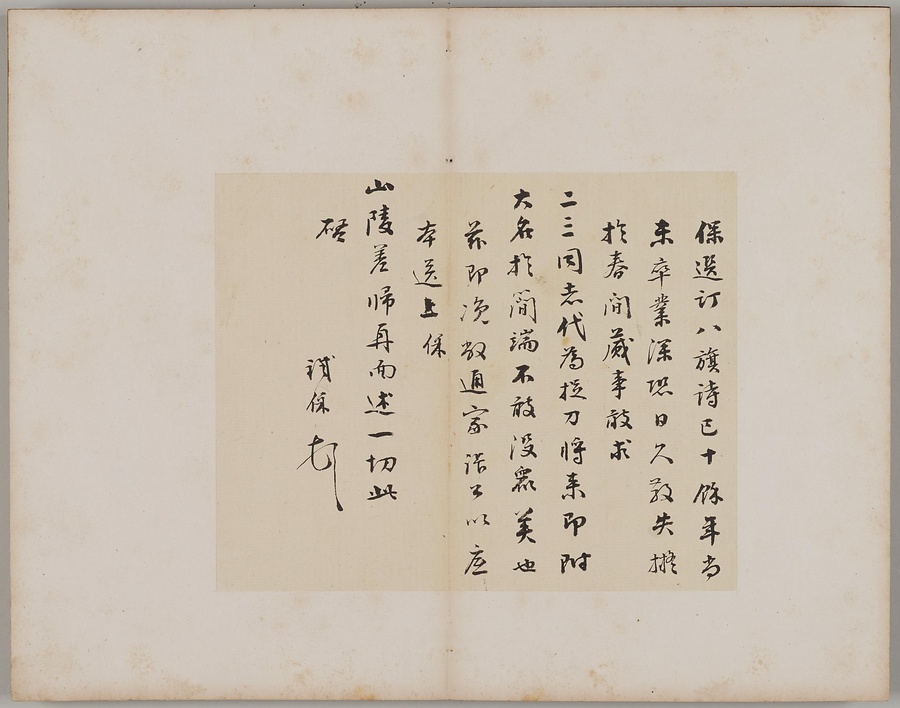 保選訂八旗詩已十餘年尚
未卒業深恐日久散失擬
於春間蕆事敢求
二三同志代為捉刀將來即附
大名於簡端不敢沒眾美也
茲即須敝通家諸公以底
本送上保
山陵差歸再面述一切此
啓
鐵保